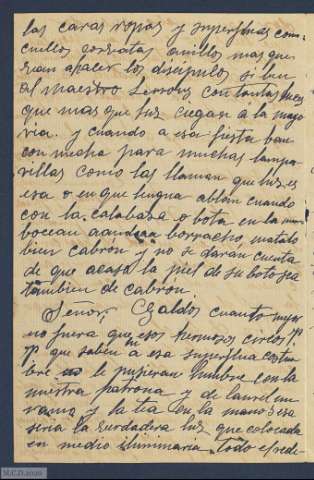 las caras ropas y superfluas con
cuellos corbatas anillos mas que
ran apacer los discipulos si ben
al maestro Lerroux con tantas luces
que mas que luz ciegan á la mayo
ria. y cuando a esa fiesta ban
con mecha para muchas lampa
rillas como las llaman que luz es
esa o en que lengua ablan cuando
con la calabasa o bota en la
bocean borracho, matalo
bien cabrón y no se daran cuenta
de que acaso la piel de su bota sea
tambien de cabron.
Señor, Galdos cuanto mejor
no fuera que esos hermosos cirios
que saben a esa superflua costum
bre le pusieran lumbre con la
nuestra patrona y de laurel un
ramo y la tea en la mano esa
seria la verdadera luz que colocada
en medio iluminaria todo el rede
M.C.D. 2020